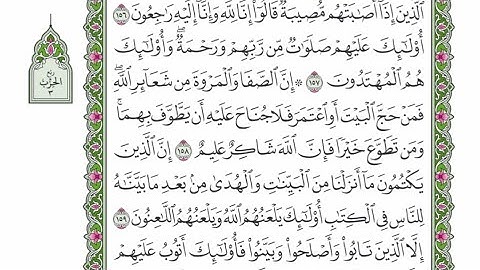 ٱلَّذِينَ إِذَآ أَصَٰبَتْهُم مُّصِيبَةٌ قَالُوٓاْ إِنَّا لِلَّهِ وَإِنَّآ إِلَيْهِ رَٰجِعُونَ ١٥٦
أُوْلَٰٓئِكَ عَلَيْهِمْ صَلَوَٰتٌ مِّن رَّبِّهِمْ وَرَحْمَةٌ ۖ وَأُوْلَٰٓئِكَ
هُمُ ٱلْمُهْتَدُونَ ١٥٧ ۞ إِنَّ ٱلصَّفَا وَٱلْمَرْوَةَ مِن شَعَآئِرِ ٱللَّهِ ۖ
فَمَنْ حَجَّ ٱلْبَيْتَ أَوِ ٱعْتَمَرَ فَلَا جُنَاحَ عَلَيْهِ أَن يَطَّوَّفَ بِهِمَا ۚ
وَمَن تَطَوَّعَ خَيْرًا فَإِنَّ ٱللَّهَ شَاكِرٌ عَلِيمٌ ١٥٨ إِنَّ ٱلَّذِينَ
يَكْتُمُونَ مَآ أَنزَلْنَا مِنَ ٱلْبَيِّنَٰتِ وَٱلْهُدَىٰ مِنۢ بَعْدِ مَا بَيَّنَّٰهُ
لِلنَّاسِ فِي ٱلْكِتَٰبِ أُوْلَٰٓئِكَ يَلْعَنُهُمُ ٱللَّهُ وَيَلْعَنُهُمُ ٱللَّٰعِنُونَ ١٥٩
إِلَّا ٱلَّذِينَ تَابُواْ وَأَصْلَحُواْ وَبَيَّنُواْ فَأُوْلَٰٓئِكَ أَتُوبُ عَلَيْهِمْ
ربع
الحزب
٣